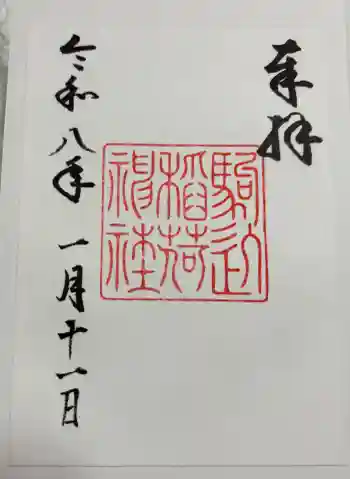 奉拝
駒込
稲荷
神社
令和八年一月十一日